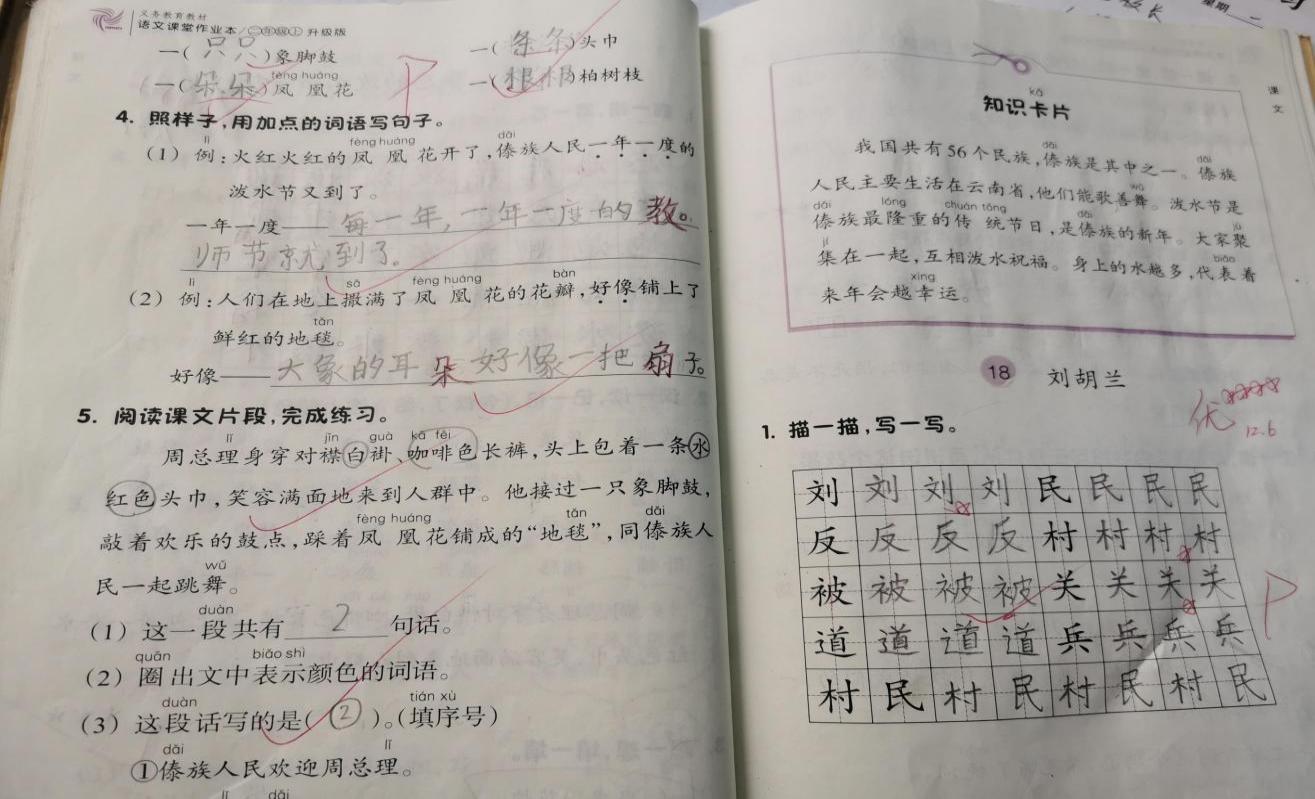 义务教育教材
语文课堂作业本 二年级上 升级版
一(只只)象脚鼓 一(条条)头巾
fèng huáng
一(朵朵)凤凰花 一(根根)柏树枝
4. 照样子,用加点的词语写句子。
lì fèng huáng dǎi
(1) 例:火红火红的凤凰花开了,傣族人民一年一度的
泼水节又到了。
一年一度——每一年,一年一度的教。
师节就到了。
lì sǎ fèng huáng bàn
(2) 例:人们在地上撒满了凤凰花的花瓣,好像铺上了
tǎn
鲜红的地毯。
好像——大象的耳朵好像一把扇子。
5. 阅读课文片段,完成练习。
lǐ jīn guà kā fēi
周总理身穿对襟白褂、咖啡色长裤,头上包着一条水
红色头巾,笑容满面地来到人群中。他接过一只象脚鼓,
fèng huáng tǎn dǎi
敲着欢乐的鼓点,踩着凤凰花铺成的“地毯”,同傣族人
wǔ
民一起跳舞。
duàn
(1) 这一段共有2句话。
quān biǎo shì
(2) 圈出文中表示颜色的词语。
duàn tián xù
(3) 这段话写的是(②)。(填序号)
dǎi lǐ
①傣族人民欢迎周总理。
lǐ dǎi
课文
kǎ
知识卡片
dǎi dǎi
我国共有56个民族,傣族是其中之一。傣族
wǔ
人民主要生活在云南省,他们能歌善舞。泼水节是
dǎi lóng chuán tǒng dǎi jù
傣族最隆重的传统节日,是傣族的新年。大家聚
jí biǎo
集在一起,互相泼水祝福。身上的水越多,代表着
xìng
来年会越幸运。
18 刘胡兰
优
12.6
1. 描一描,写一写。
刘刘刘刘民民民民
反反反反村村村村
被被被被关关关关
道道道道兵兵兵兵
村民村民村民村民